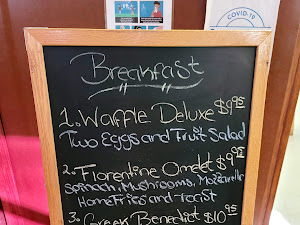 COVID-19
Breakfast
1. Waffle Deluxe $9.95
Two Eggs and Fruit Salad
2. Florentine Omelet $9.95
Spinach, Mushrooms, Mozzarella
Home Fries and Toast
3. Greek Benedict $10.95